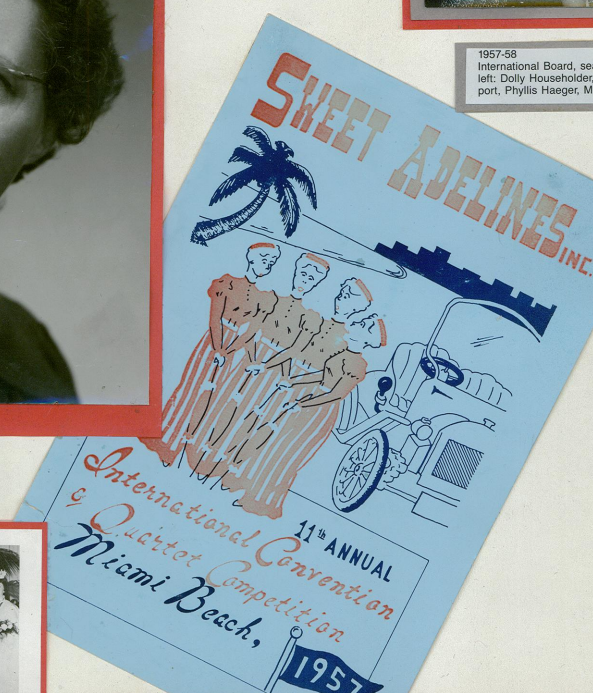 1957-58
International Board, sea
left: Dolly Householder,
port, Phyllis Haeger, M
SWEET ADELINES INC.
11th ANNUAL
International Convention
& Quartet Competition
Miami Beach,
1957